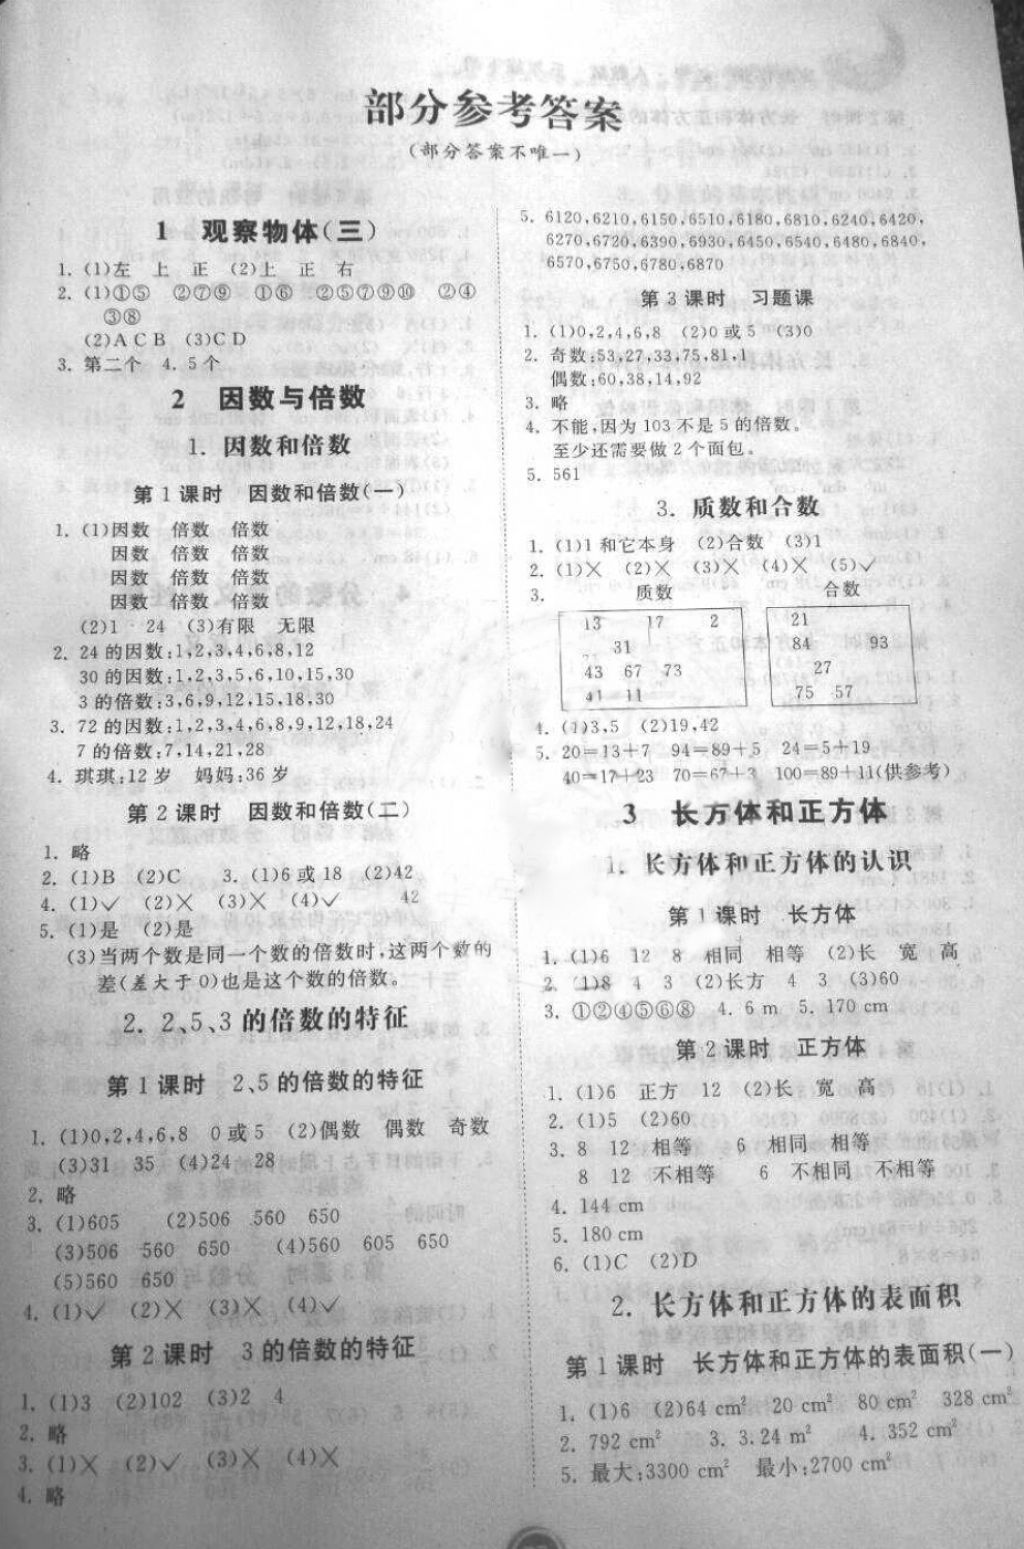 部分参考答案
(部分答案不唯一)
1 观察物体(三)
1. (1)左 上 正 (2)上 正 右
2. (1)①⑤ ②⑦⑨ ①⑥ ②⑤⑦⑨⑩ ②④
③⑧
(2)A C B (3)C D
3. 第二个 4. 5个
2 因数与倍数
1. 因数和倍数
第1课时 因数和倍数(一)
1. (1)因数 倍数 倍数
因数 倍数 倍数
因数 倍数 倍数
因数 倍数 倍数
(2)1 24 (3)有限 无限
2. 24的因数:1,2,3,4,6,8,12
30的因数:1,2,3,5,6,10,15,30
3的倍数:3,6,9,12,15,18,30
3. 72的因数:1,2,3,4,6,8,9,12,18,24
7的倍数:7,14,21,28
4. 琪琪:12岁 妈妈:36岁
第2课时 因数和倍数(二)
1. 略
2. (1)B (2)C 3. (1)6或18 (2)42
4. (1)✓ (2)✕ (3)✕ (4)✓ 42
5. (1)是 (2)是
(3)当两个数是同一个数的倍数时,这两个数的
差(差大于0)也是这个数的倍数。
2. 2、5、3的倍数的特征
第1课时 2、5的倍数的特征
1. (1)0,2,4,6,8 0或5 (2)偶数 偶数 奇数
(3)31 35 (4)24 28
2. 略
3. (1)605 (2)506 560 650
(3)506 560 650 (4)560 605 650
(5)560 650
4. (1)✓ (2)✕ (3)✕ (4)✓
第2课时 3的倍数的特征
1. (1)3 (2)102 (3)2 4
2. 略
3. (1)✕ (2)✓ (3)✕ (4)✕
4. 略
5. 6120,6210,6150,6510,6180,6810,6240,6420,
6270,6720,6390,6930,6450,6540,6480,6840,
6570,6750,6780,6870
第3课时 习题课
1. (1)0,2,4,6,8 (2)0或5 (3)0
2. 奇数:53,27,33,75,81,1
偶数:60,38,14,92
3. 略
4. 不能,因为103不是5的倍数。
至少还需要做2个面包。
5. 561
3. 质数和合数
1. (1)1和它本身 (2)合数 (3)1
2. (1)✕ (2)✕ (3)✕ (4)✕ (5)✓
3. 质数 合数
13 17 2 21
31 84 93
43 67 73 27
41 11 75 57
4. (1)3,5 (2)19,42
5. 20=13+7 94=89+5 24=5+19
40=17+23 70=67+3 100=89+11(供参考)
3 长方体和正方体
1. 长方体和正方体的认识
第1课时 长方体
1. (1)6 12 8 相同 相等 (2)长 宽 高
2. (1)8 4 3 (2)长方 4 3 (3)60
3. ①②④⑤⑥⑧ 4. 6 m 5. 170 cm
第2课时 正方体
1. (1)6 正方 12 (2)长 宽 高
2. (1)5 (2)60
3. 8 12 相等 6 相同 相等
8 12 不相等 6 不相同 不相等
4. 144 cm
5. 180 cm
6. (1)C (2)D
2. 长方体和正方体的表面积
第1课时 长方体和正方体的表面积(一)
1. (1)6 (2)64 cm² 20 cm² 80 cm² 328 cm²
2. 792 cm² 3. 3.24 m² 4. 352 cm²
5. 最大:3300 cm² 最小:2700 cm²